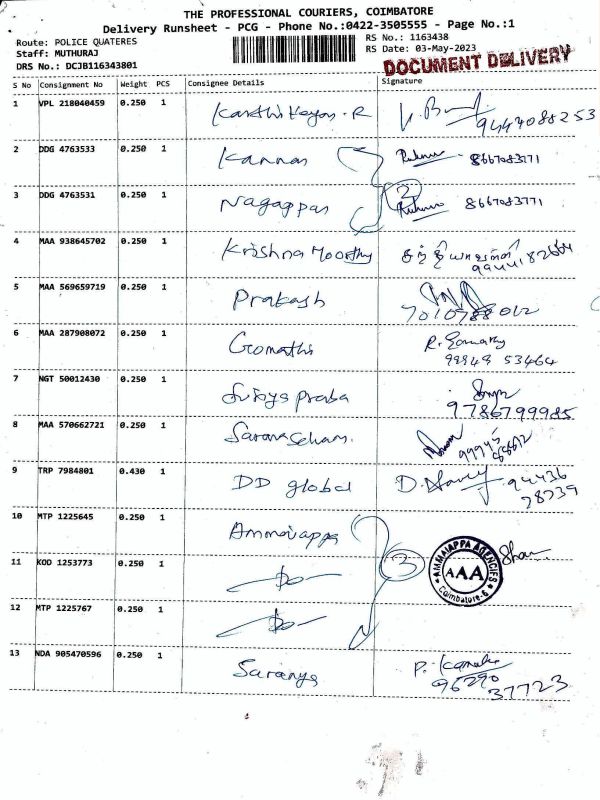 THE PROFESSIONAL COURIERS, COIMBATORE
Delivery Runsheet - PCG - Phone No.:0422-3505555 - Page No.:1
Route: POLICE QUATERES
Staff: MUTHURAJ
DRS No.: DCJB116343801
RS No.: 1163438
RS Date: 03-May-2023
DOCUMENT DELIVERY
S No Consignment No Weight PCS Consignee Details Signature
1 VPL 218040459 0.250 1 Karthikeyan. R 9444088253
2 DDG 4763533 0.250 1 Kannan 8667083771
3 DDG 4763531 0.250 1 Nagappan 2 8667083771
4 MAA 938645702 0.250 1 Krishna Moorthy
5 MAA 569659719 0.250 1 Prakash 7010788012
6 MAA 287908072 0.250 1 Gomathi R. Gomathy
99949 53464
7 NGT 50012430 0.250 1 9786799985
8 MAA 570662721 0.250 1
9 TRP 7984801 0.430 1 DD global 94436
28239
10 MTP 1225645 0.250 1 Ammaiappa
11 KOD 1253773 0.250 1 3 AMMAIAPPA AGENCIES
AAA
Coimbatore-6
12 MTP 1225767 0.250 1
13 NDA 905470596 0.250 1 Saranya 96290
37723